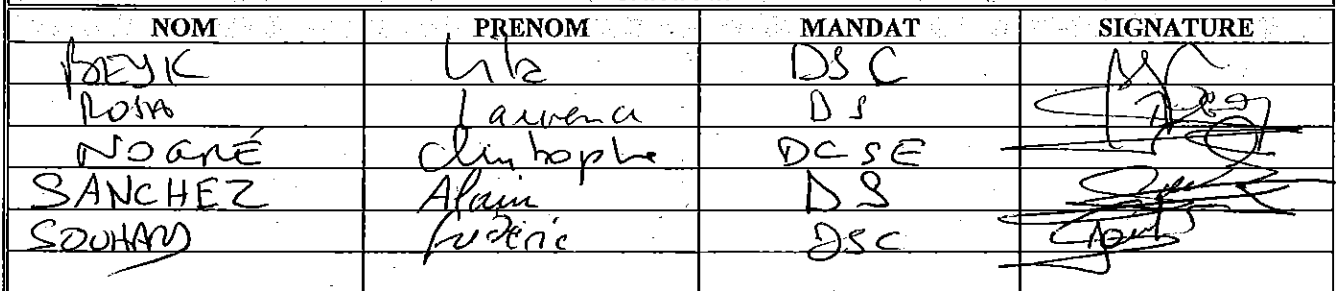 NOM PRENOM MANDAT SIGNATURE
BEYK DSC
ROSA Laurence DS
NOGRÉ Christophe DCSE
SANCHEZ Alain DS
SOUHARD Frédéric DSC